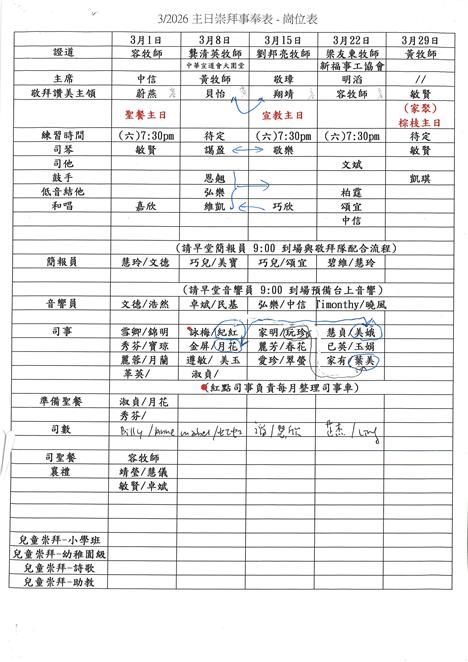 3/2026 主日崇拜事奉表 - 崗位表
3月1日 3月8日 3月15日 3月22日 3月29日
證道 容牧師 龔清英牧師 劉邦亮牧師 梁友東牧師 黃牧師
中華宣道會大圍堂 新福事工協會
主席 中信 黃牧師 敬璋 明滔 //
敬拜讚美主領 蔚燕 貝怡 翔靖 容牧師 敏賢
聖餐主日 宣教主日 (家聚)
棕枝主日
練習時間 (六)7:30pm 待定 (六)7:30pm (六)7:30pm 待定
司琴 敏賢 諹盈 敬樂 敏賢
司他 文斌
鼓手 思翹 凱琪
低音結他 弘樂 柏霆
和唱 嘉欣 維凱 巧欣 頌宜
中信
(請早堂簡報員 9:00 到場與敬拜隊配合流程)
簡報員 慧玲/文德 巧兒/美寶 巧兒/頌宜 碧維/慧玲
(請早堂音響員 9:00 到場預備台上音響)
音響員 文德/浩然 卓斌/民基 弘樂/中信 Timonthy/曉風
司事 雪卿/錦明 詠梅/紀紅 家明/玩珍 慧貞/美娥
秀芬/寶琼 金屏/月花 麗芳/春花 已英/玉娟
麗蓉/月蘭 遵敏/ 美玉 愛珍/翠螢 家有/葉美
革英/ 淑貞/
(紅點司事負責每月整理司事車)
準備聖餐 淑貞/月花
秀芬/
司數 Billy/Anne
司聖餐 容牧師
襄禮 靖瑩/慧儀
敏賢/卓斌
兒童崇拜-小學班
兒童崇拜-幼稚園級
兒童崇拜-詩歌
兒童崇拜-助教